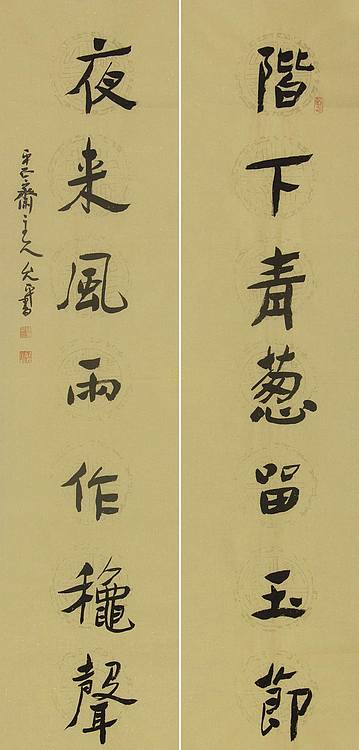 階下青葱留玉節
夜来風雨作穐聲
齋主人書